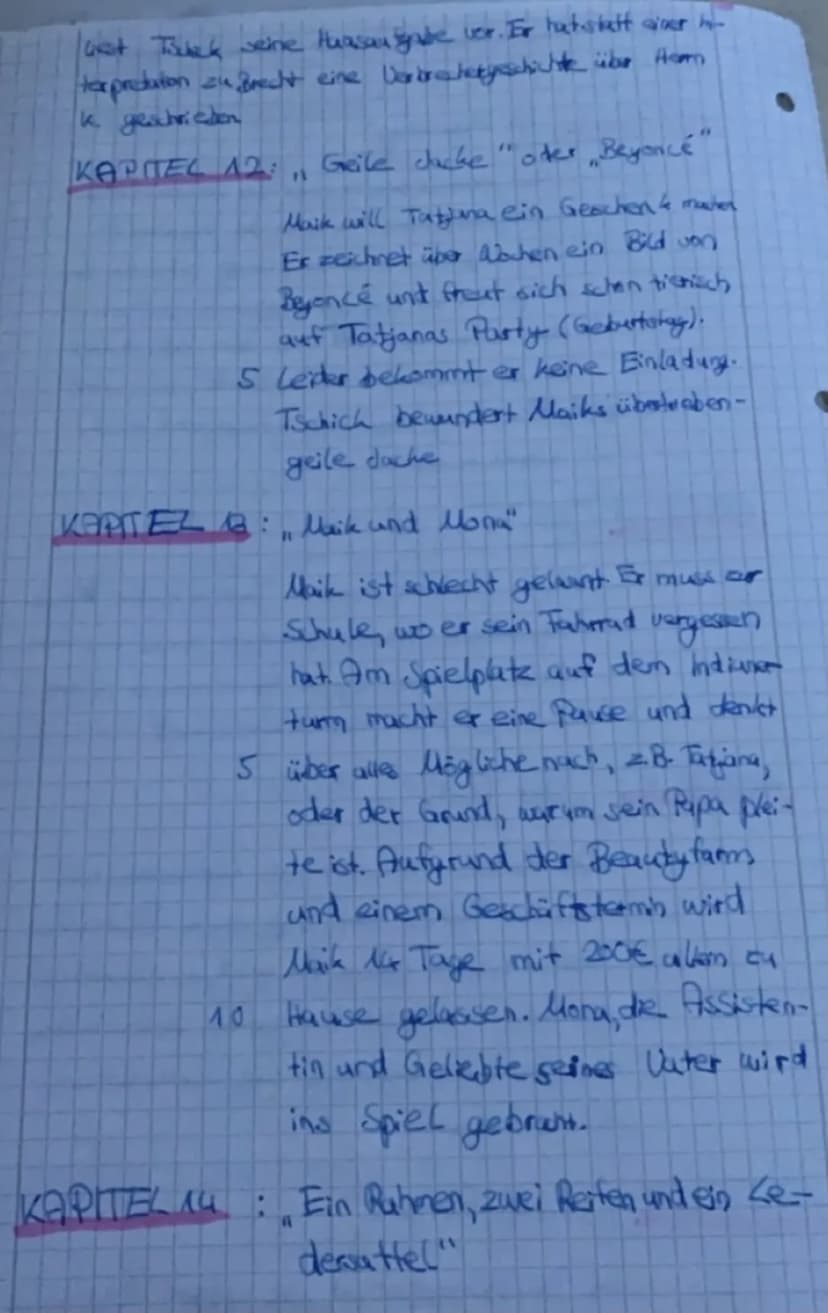 liest Tschick seine Hausaufgabe vor. Er hat statt einer In-
terpretation zu Brecht eine Verbrechergeschichte über Herrn
K geschrieben
KAPITEL 12: „Geile Jacke" oder „Beyoncé"
Maik will Tatjana ein Geschenk machen
Er zeichnet über Wochen ein Bild von
Beyoncé und freut sich schon tierisch
auf Tatjanas Party (Geburtstag).
5 Leider bekommt er keine Einladung.
Tschick bewundert Maiks übertrieben-
geile Jacke
KAPITEL 13: „Maik und Mona"
Maik ist schlecht gelaunt. Er muss zur
Schule, wo er sein Fahrrad vergessen
hat. Am Spielplatz auf dem Indianer
turm macht er eine Pause und denkt
5 über alles Mögliche nach, z.B. Tatjana,
oder der Grund, warum sein Papa plei-
te ist. Aufgrund der Beautyfarm
und einem Geschäftstermin wird
Maik 14 Tage mit 200€ allein zu
10 Hause gelassen. Mona, die Assisten-
tin und Geliebte seines Vater wird
ins Spiel
KAPITEL 14: „Ein Rahmen, zwei Reifen und ein Le-
dersattel"